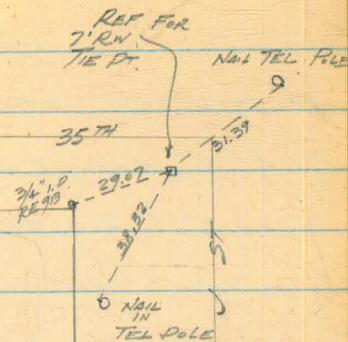 REF FOR
7' R/W
TIE PT.
NAIL TEL POLE
35TH
31.39
29.02
3/4" I.P.
RE 913
38.32
ST
NAIL
IN
TEL POLE